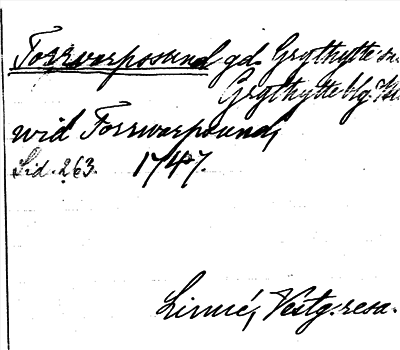 Torrvarpsund gd. Grythytte sn
Grythytte blg.
wid Torrwarpsund,
Sid. 263. 1747.
Linné, Vestg. resa.